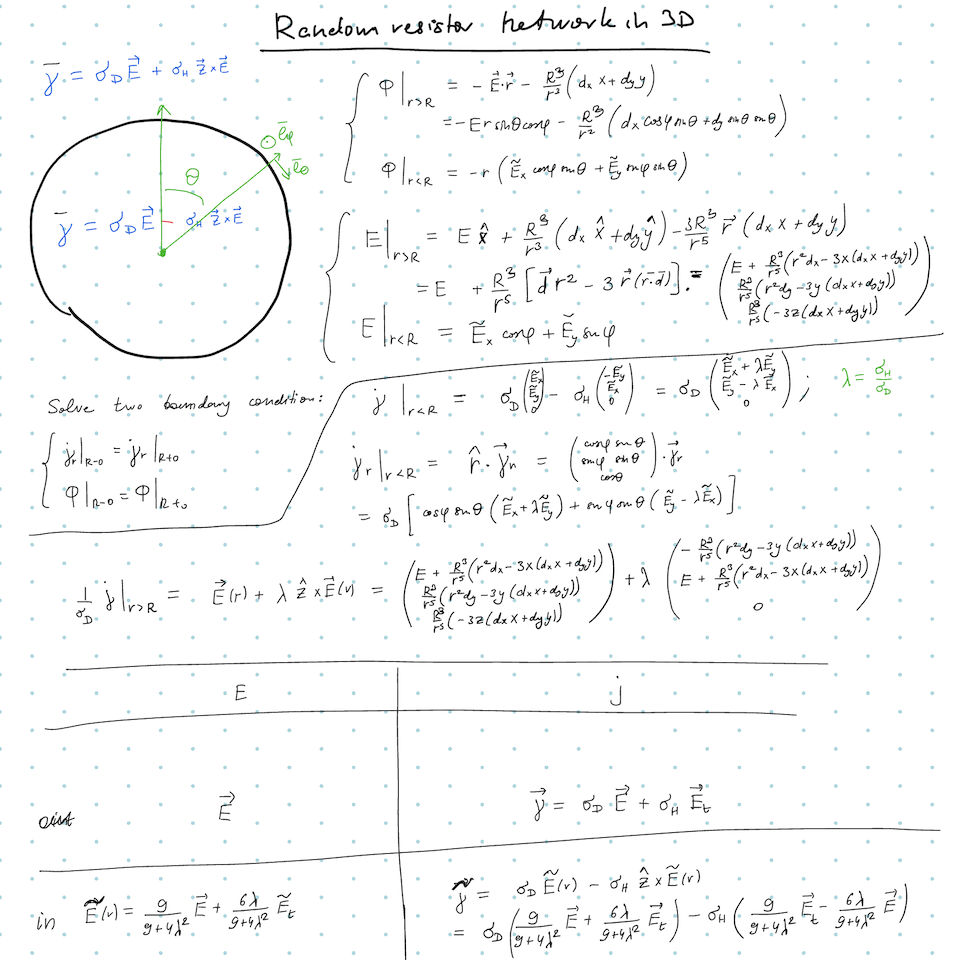 Random resistor network in 3D
j̄ = σ_D E⃗ + σ_H z⃗ × E⃗
θ
ē_φ
ē_θ
j̄ = σ_D E⃗ - σ_H z⃗ × E⃗
φ|_{r>R} = - E⃗·r⃗ - R³/r³ (d_x x + d_y y)
= - E r sinθ cosφ - R³/r² (d_x cosφ sinθ + d_y sinθ sinθ)
φ|_{r<R} = - r (Ẽ_x cosφ sinθ + Ẽ_y sinφ sinθ)
E|_{r>R} = E x̂ + R³/r³ (d_x x̂ + d_y ŷ) - 3R³/r⁵ r⃗ (d_x x + d_y y)
= E + R³/r⁵ [d⃗ r² - 3 r⃗ (r̄·d̄)] = ( E + R³/r⁵ (r² d_x - 3x (d_x x + d_y y)) ; R³/r⁵ (r² d_y - 3y (d_x x + d_y y)) ; R³/r⁵ (-3z (d_x x + d_y y)) )
E|_{r<R} = Ẽ_x cosφ + Ẽ_y sinφ
Solve two boundary condition:
j_r|_{R-0} = j_r|_{R+0}
φ|_{R-0} = φ|_{R+0}
j|_{r<R} = σ_D (Ẽ_x ; Ẽ_y ; 0) - σ_H (-Ẽ_y ; Ẽ_x ; 0) = σ_D (Ẽ_x + λẼ_y ; Ẽ_y - λẼ_x ; 0) ; λ = σ_H/σ_D
j_r|_{r<R} = r̂ · j⃗_r = (cosφ sinθ ; sinφ sinθ ; cosθ) · j⃗_r
= σ_D [cosφ sinθ (Ẽ_x + λẼ_y) + sinφ sinθ (Ẽ_y - λẼ_x)]
1/σ_D j|_{r>R} = E⃗(r) + λ ẑ × E⃗(r) = ( E + R³/r⁵ (r² d_x - 3x (d_x x + d_y y)) ; R³/r⁵ (r² d_y - 3y (d_x x + d_y y)) ; R³/r⁵ (-3z (d_x x + d_y y)) ) + λ ( - R³/r⁵ (r² d_y - 3y (d_x x + d_y y)) ; E + R³/r⁵ (r² d_x - 3x (d_x x + d_y y)) ; 0 )
E j
E⃗ j⃗ = σ_D E⃗ + σ_H E⃗_t
in Ẽ(r) = 9/(9+4λ²) E⃗ + 6λ/(9+4λ²) E⃗_t
j̃ = σ_D Ẽ(r) - σ_H ẑ × Ẽ(r)
= σ_D (9/(9+4λ²) E⃗ + 6λ/(9+4λ²) E⃗_t) - σ_H (9/(9+4λ²) E⃗_t - 6λ/(9+4λ²) E⃗)